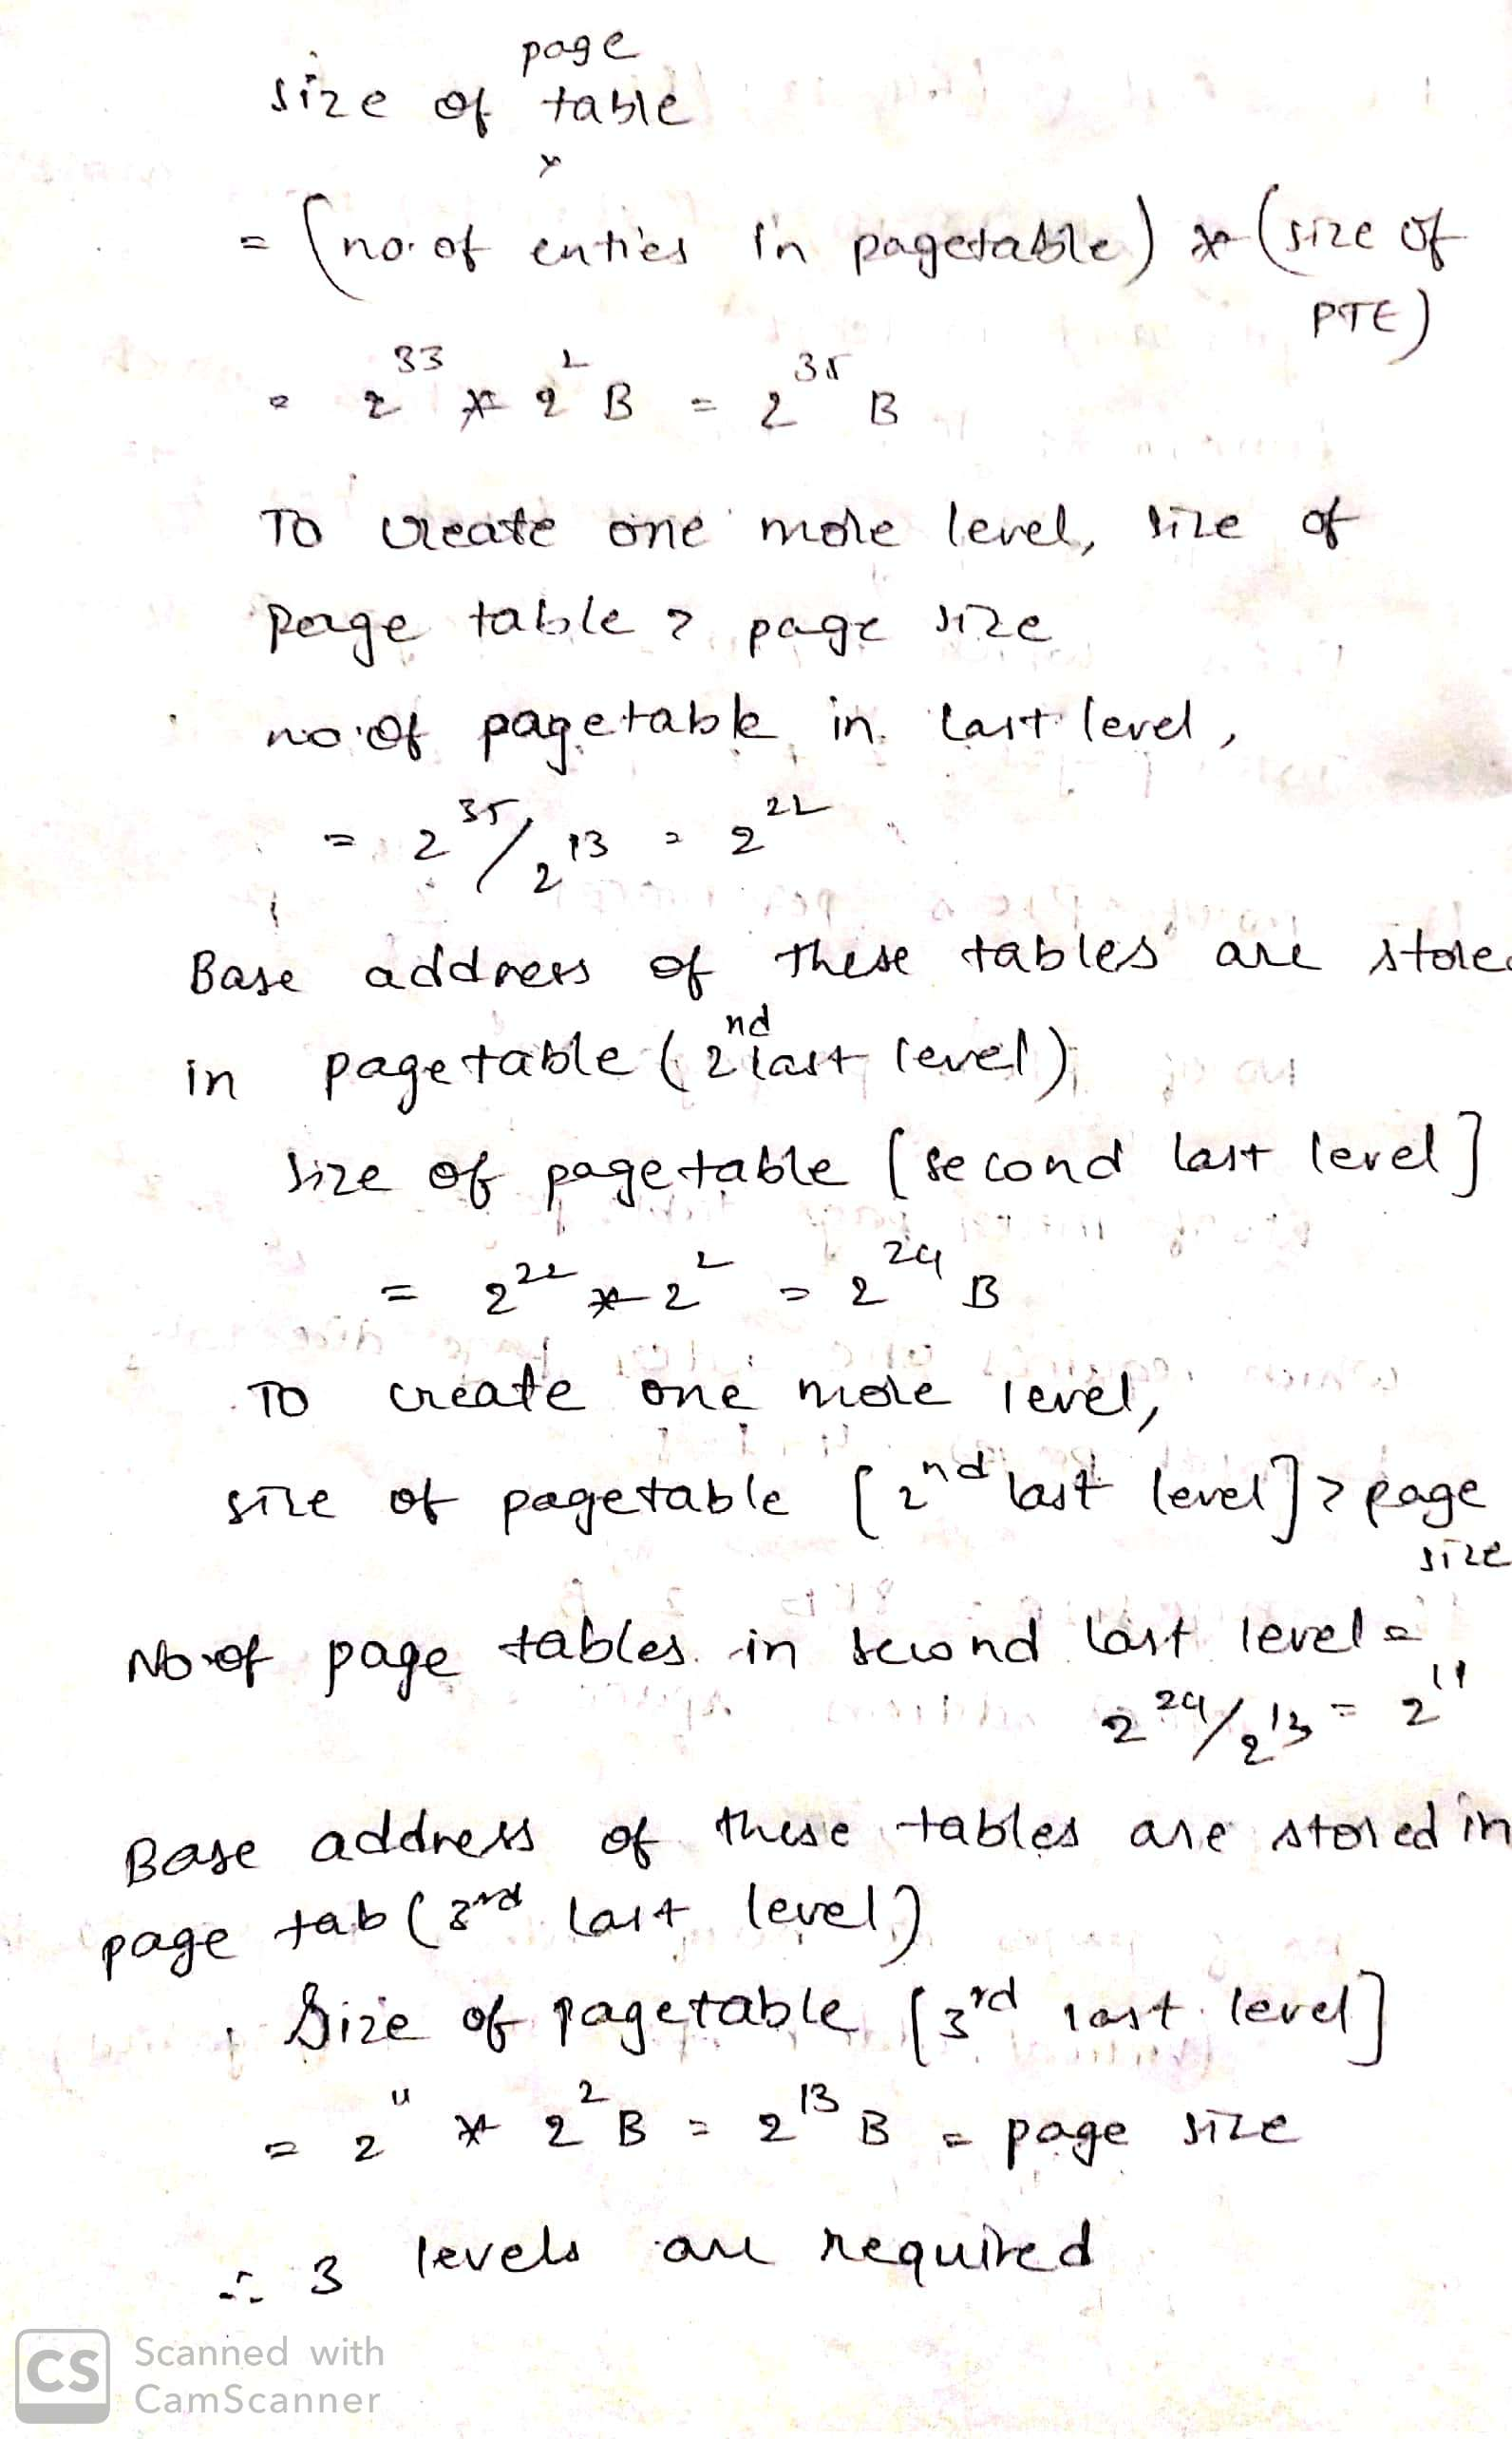 size of page table
= (no. of enties in pagetable) * (size of
PTE)
= 2^33 * 2^2 B = 2^35 B
To create one more level, size of
Page table > page size
no. of pagetable in last level,
= 2^35/2^13 = 2^22
Base address of these tables are store
in pagetable (2nd last level)
size of pagetable [second last level]
= 2^22 * 2^2 = 2^24 B
To create one more level,
size of pagetable [2nd last level] > page
size
No of page tables in second last level =
2^24/2^13 = 2^11
Base address of these tables are stored in
page tab (3rd last level)
Size of pagetable [3rd last level]
= 2^11 * 2^2 B = 2^13 B = page size
∴ 3 levels are required
CS Scanned with
CamScanner